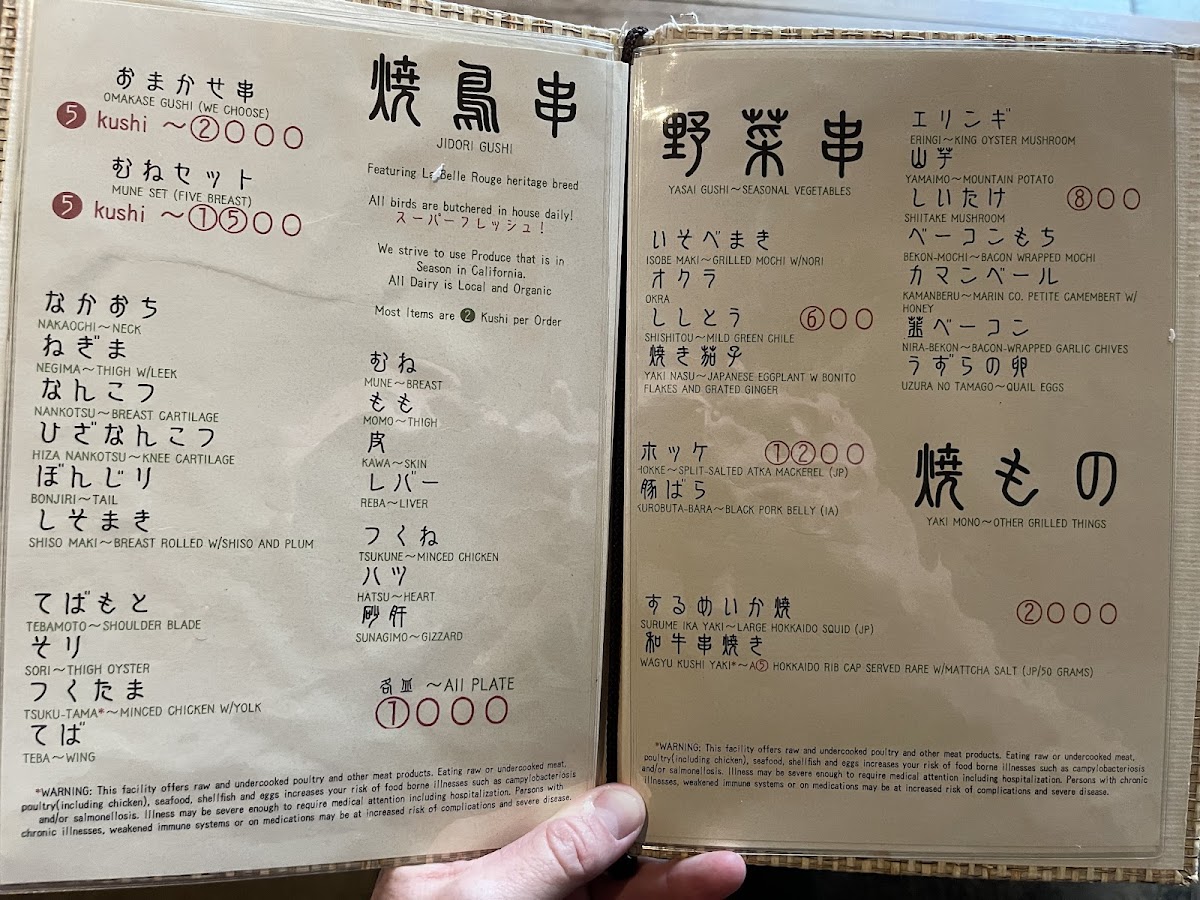 おまかせ串
OMAKASE GUSHI (WE CHOOSE)
5 kushi ～2000
むねセット
MUNE SET (FIVE BREAST)
5 kushi ～1500
なかおち
NAKAOCHI～NECK
ねぎま
NEGIMA～THIGH W/LEEK
なんこつ
NANKOTSU～BREAST CARTILAGE
ひざなんこつ
HIZA NANKOTSU～KNEE CARTILAGE
ぼんじり
BONJIRI～TAIL
しそまき
SHISO MAKI～BREAST ROLLED W/SHISO AND PLUM
てばもと
TEBAMOTO～SHOULDER BLADE
そり
SORI～THIGH OYSTER
つくたま
TSUKU-TAMA*～MINCED CHICKEN W/YOLK
てば
TEBA～WING
焼鳥串
JIDORI GUSHI
Featuring La Belle Rouge heritage breed
All birds are butchered in house daily!
スーパーフレッシュ!
We strive to use Produce that is in
Season in California.
All Dairy is Local and Organic
Most Items are 2 Kushi per Order
むね
MUNE～BREAST
もも
MOMO～THIGH
皮
KAWA～SKIN
レバー
REBA～LIVER
つくね
TSUKUNE～MINCED CHICKEN
ハツ
HATSU～HEART
砂肝
SUNAGIMO～GIZZARD
各皿 ～All PLATE
1000
*WARNING: This facility offers raw and undercooked poultry and other meat products. Eating raw or undercooked meat,
poultry(including chicken), seafood, shellfish and eggs increases your risk of food borne illnesses such as campylobacteriosis
and/or salmonellosis. Illness may be severe enough to require medical attention including hospitalization. Persons with
chronic illnesses, weakened immune systems or on medications may be at increased risk of complications and severe disease.
野菜串
YASAI GUSHI～SEASONAL VEGETABLES
いそべまき
ISOBE MAKI～GRILLED MOCHI W/NORI
オクラ
OKRA
ししとう 600
SHISHITOU～MILD GREEN CHILE
焼き茄子
YAKI NASU～JAPANESE EGGPLANT W BONITO
FLAKES AND GRATED GINGER
エリンギ
ERINGI～KING OYSTER MUSHROOM
山芋
YAMAIMO～MOUNTAIN POTATO
しいたけ 800
SHIITAKE MUSHROOM
ベーコンもち
BEKON-MOCHI～BACON WRAPPED MOCHI
カマンベール
KAMANBERU～MARIN CO. PETITE CAMEMBERT W/
HONEY
韮ベーコン
NIRA-BEKON～BACON-WRAPPED GARLIC CHIVES
うずらの卵
UZURA NO TAMAGO～QUAIL EGGS
ホッケ 1200
HOKKE～SPLIT-SALTED ATKA MACKEREL (JP)
豚ばら
KUROBUTA-BARA～BLACK PORK BELLY (IA)
焼もの
YAKI MONO～OTHER GRILLED THINGS
するめいか焼 2000
SURUME IKA YAKI～LARGE HOKKAIDO SQUID (JP)
和牛串焼き
WAGYU KUSHI YAKI*～A5 HOKKAIDO RIB CAP SERVED RARE W/MATTCHA SALT (JP/50 GRAMS)
*WARNING: This facility offers raw and undercooked poultry and other meat products. Eating raw or undercooked meat,
poultry(including chicken), seafood, shellfish and eggs increases your risk of food borne illnesses such as campylobacteriosis
and/or salmonellosis. Illness may be severe enough to require medical attention including hospitalization. Persons with chronic
illnesses, weakened immune systems or on medications may be at increased risk of complications and severe disease.